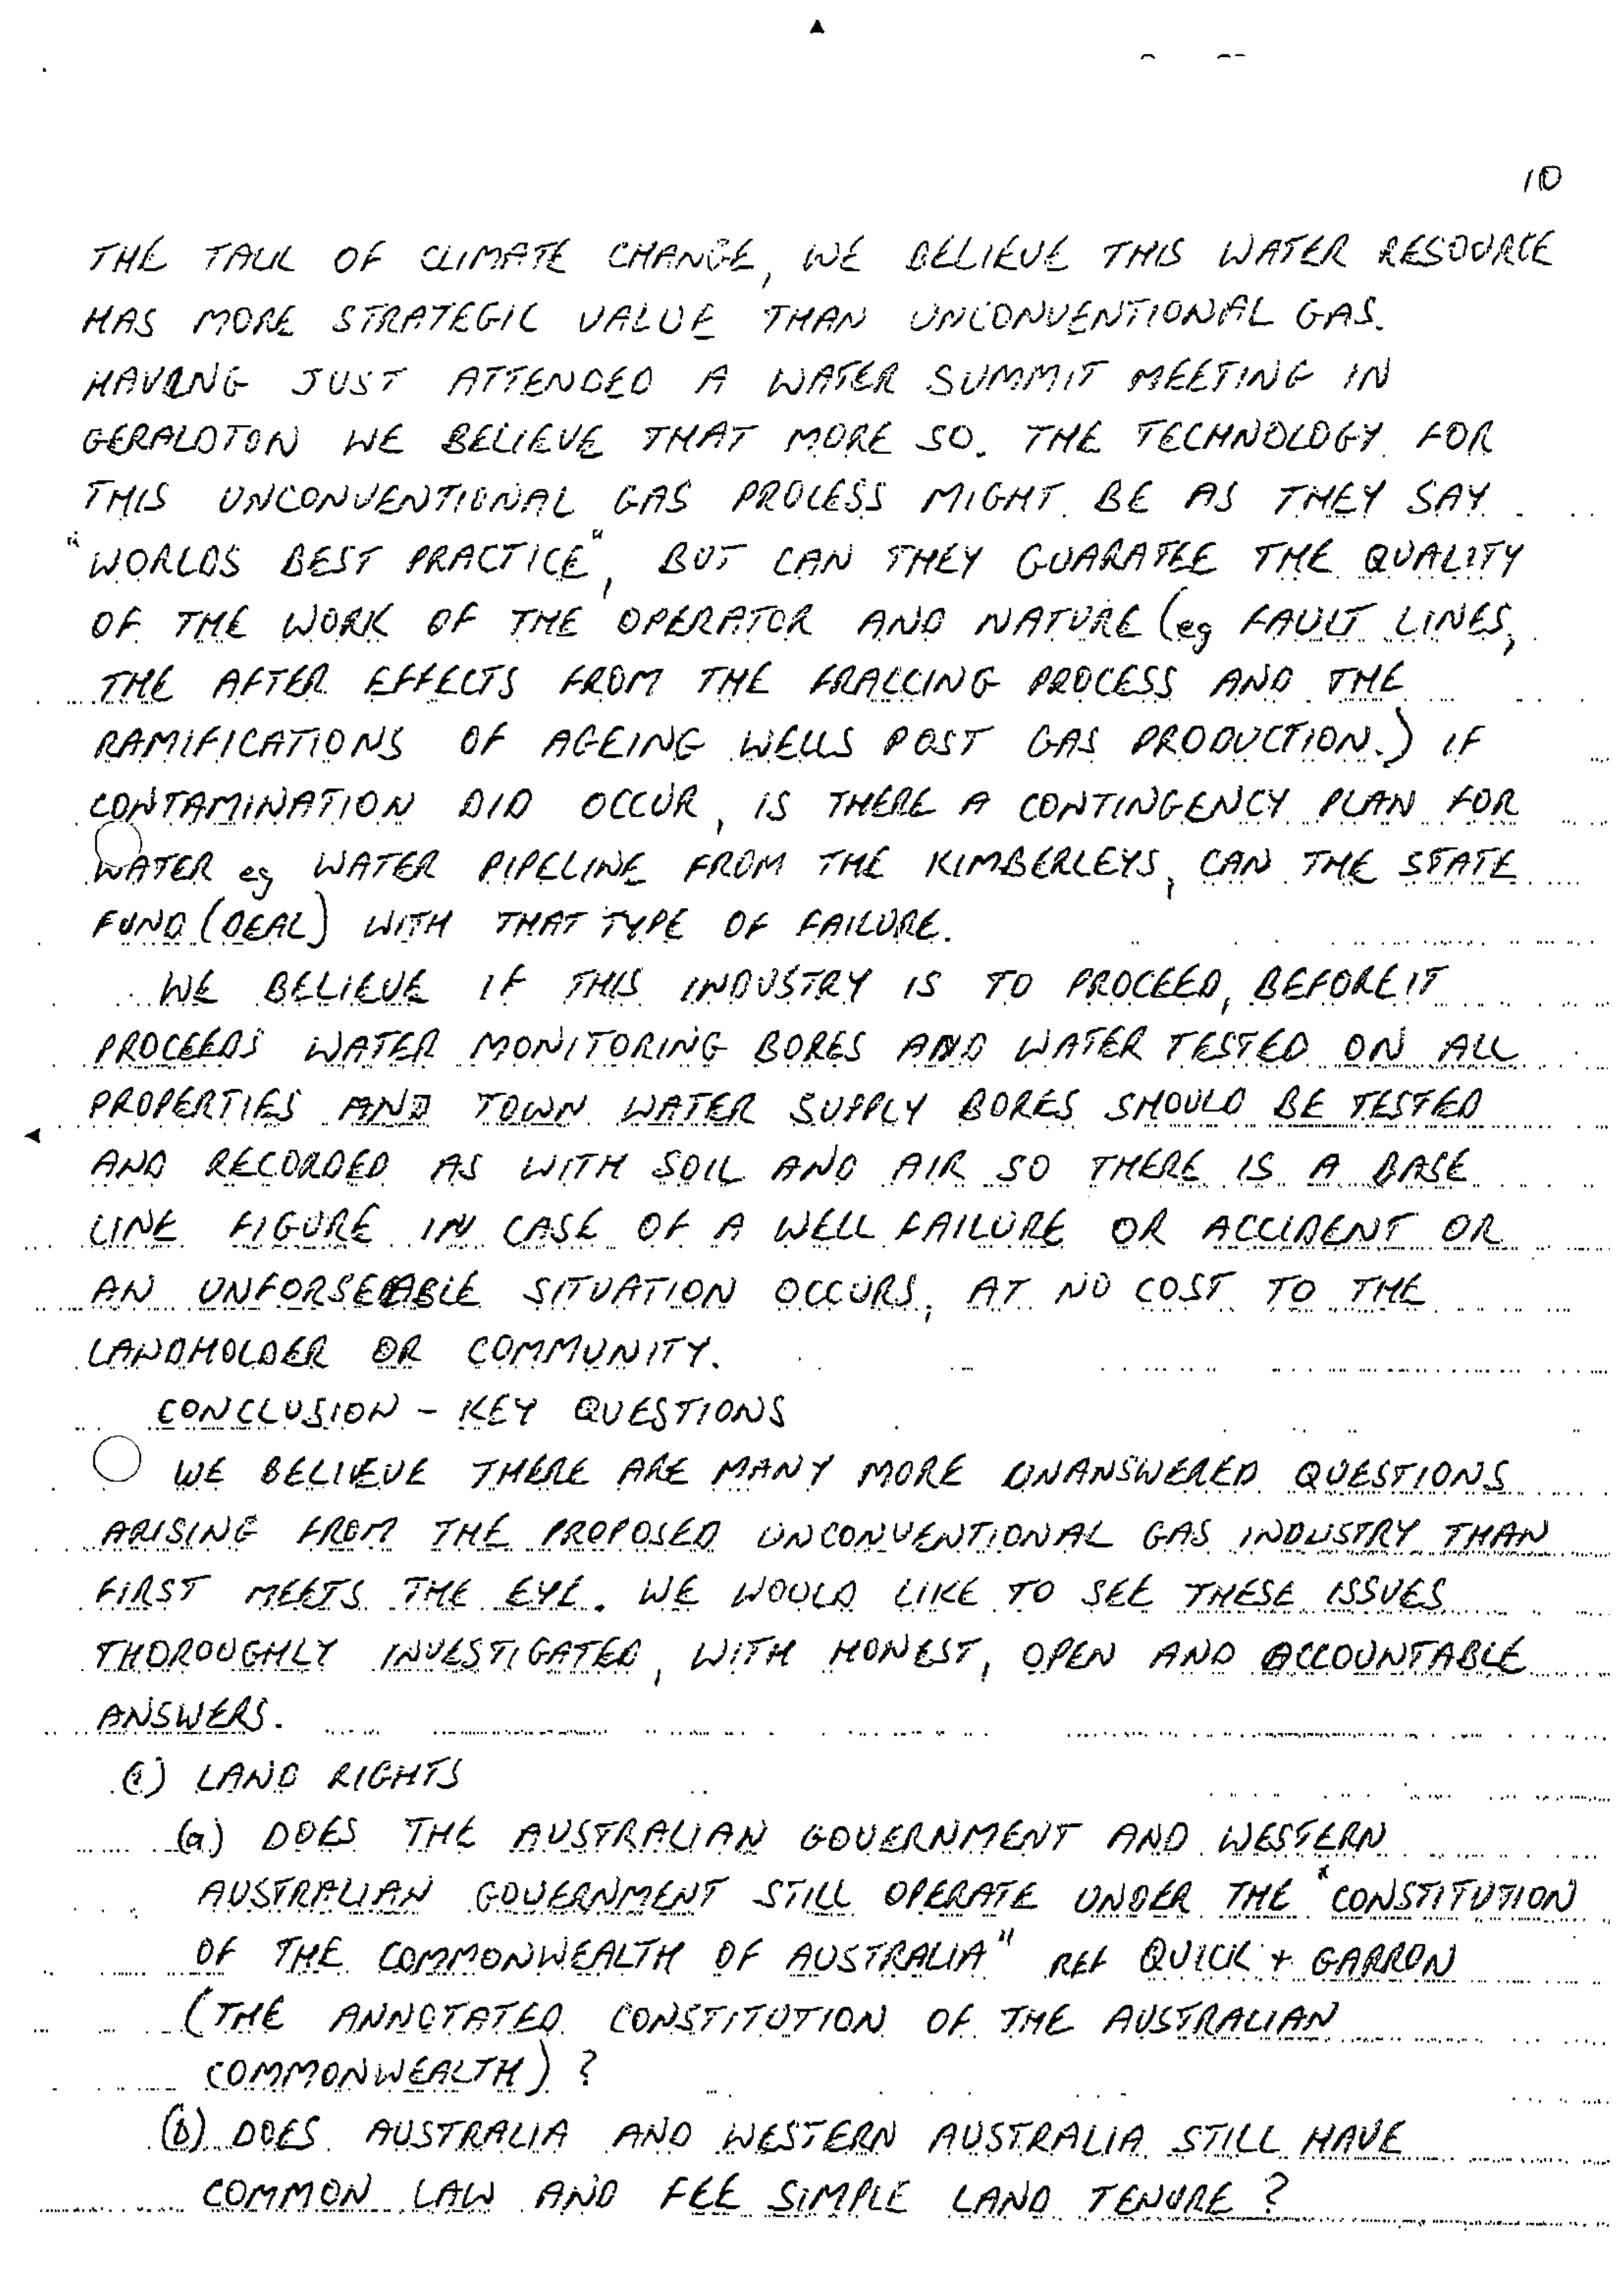 10
THE TALK OF CLIMATE CHANGE, WE BELIEVE THIS WATER RESOURCE
HAS MORE STRATEGIC VALUE THAN UNCONVENTIONAL GAS.
HAVING JUST ATTENDED A WATER SUMMIT MEETING IN
GERALDTON WE BELIEVE THAT MORE SO. THE TECHNOLOGY FOR
THIS UNCONVENTIONAL GAS PROCESS MIGHT BE AS THEY SAY
"WORLDS BEST PRACTICE", BUT CAN THEY GUARATEE THE QUALITY
OF THE WORK OF THE OPERATOR AND NATURE (eg FAULT LINES,
THE AFTER EFFECTS FROM THE FRACCING PROCESS AND THE
RAMIFICATIONS OF AGEING WELLS POST GAS PRODUCTION.) IF
CONTAMINATION DID OCCUR, IS THERE A CONTINGENCY PLAN FOR
WATER eg WATER PIPELINE FROM THE KIMBERLEYS, CAN THE STATE
FUND (DEAL) WITH THAT TYPE OF FAILURE.
WE BELIEVE IF THIS INDUSTRY IS TO PROCEED, BEFORE IT
PROCEEDS WATER MONITORING BORES AND WATER TESTED ON ALL
PROPERTIES AND TOWN WATER SUPPLY BORES SHOULD BE TESTED
AND RECORDED AS WITH SOIL AND AIR SO THERE IS A BASE
LINE FIGURE IN CASE OF A WELL FAILURE OR ACCIDENT OR
AN UNFORSEEABLE SITUATION OCCURS, AT NO COST TO THE
LANDHOLDER OR COMMUNITY.
CONCLUSION - KEY QUESTIONS
WE BELIEVE THERE ARE MANY MORE UNANSWERED QUESTIONS
ARISING FROM THE PROPOSED UNCONVENTIONAL GAS INDUSTRY THAN
FIRST MEETS THE EYE. WE WOULD LIKE TO SEE THESE ISSUES
THOROUGHLY INVESTIGATED, WITH HONEST, OPEN AND ACCOUNTABLE
ANSWERS.
LAND RIGHTS
(a) DOES THE AUSTRALIAN GOVERNMENT AND WESTERN
AUSTRALIAN GOVERNMENT STILL OPERATE UNDER THE "CONSTITUTION
OF THE COMMONWEALTH OF AUSTRALIA" REF QUICK + GARRON
(THE ANNOTATED CONSTITUTION OF THE AUSTRALIAN
COMMONWEALTH) ?
(b) DOES AUSTRALIA AND WESTERN AUSTRALIA STILL HAVE
COMMON LAW AND FEE SIMPLE LAND TENURE ?